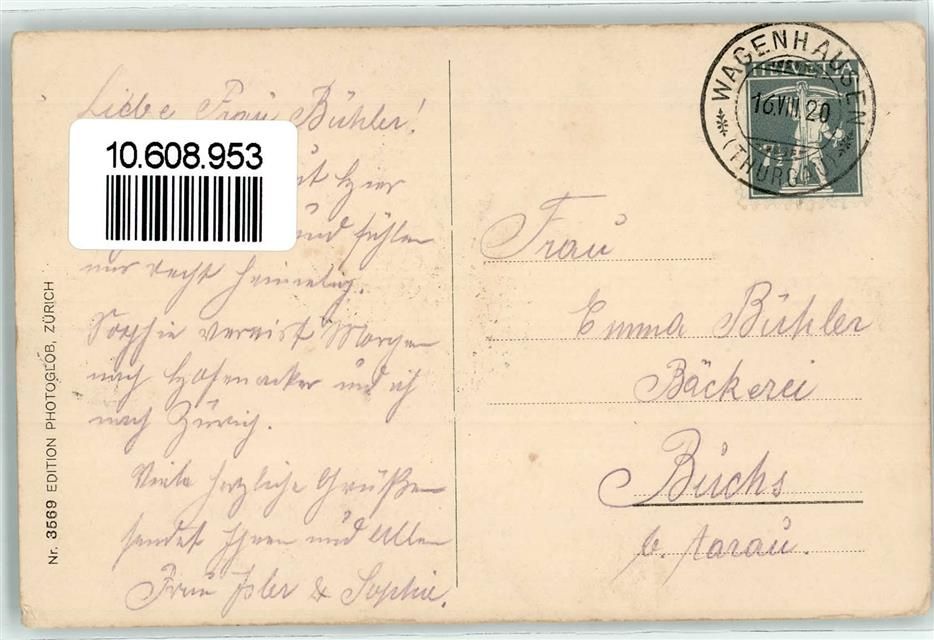 Liebe Frau Bühler!
10.608.953
gut hier
und fühlen
uns recht heimelig.
Sophie verreist Morgen
nach Hofenacker und ich
nach Zürich.
Viele herzliche Grüßen
sendet Ihnen und Allen
Frau Isler & Sophie.
Nr. 3569 EDITION PHOTOGLOB, ZÜRICH
HELVETIA
WAGENHAUSEN
16.VIII.20
(THURGAU)
Frau
Emma Bühler
Bäckerei
Buchs
b. Aarau.